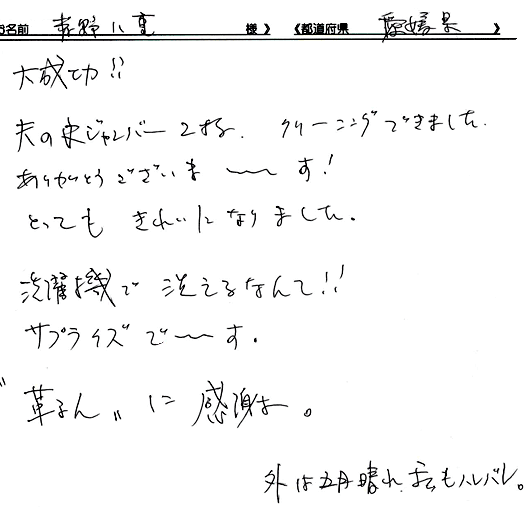 お名前 青野八重 様 》 《都道府県 愛媛県 》
大成功!!
夫の皮ジャンパー2枚. クリーニングできました.
ありがとうございま〜〜す!
とってもきれいになりました.
洗濯機で洗えるなんて!!
サプライズで〜〜す.
"革きん"に感謝.
外は五月晴れ.私もハレバレ。